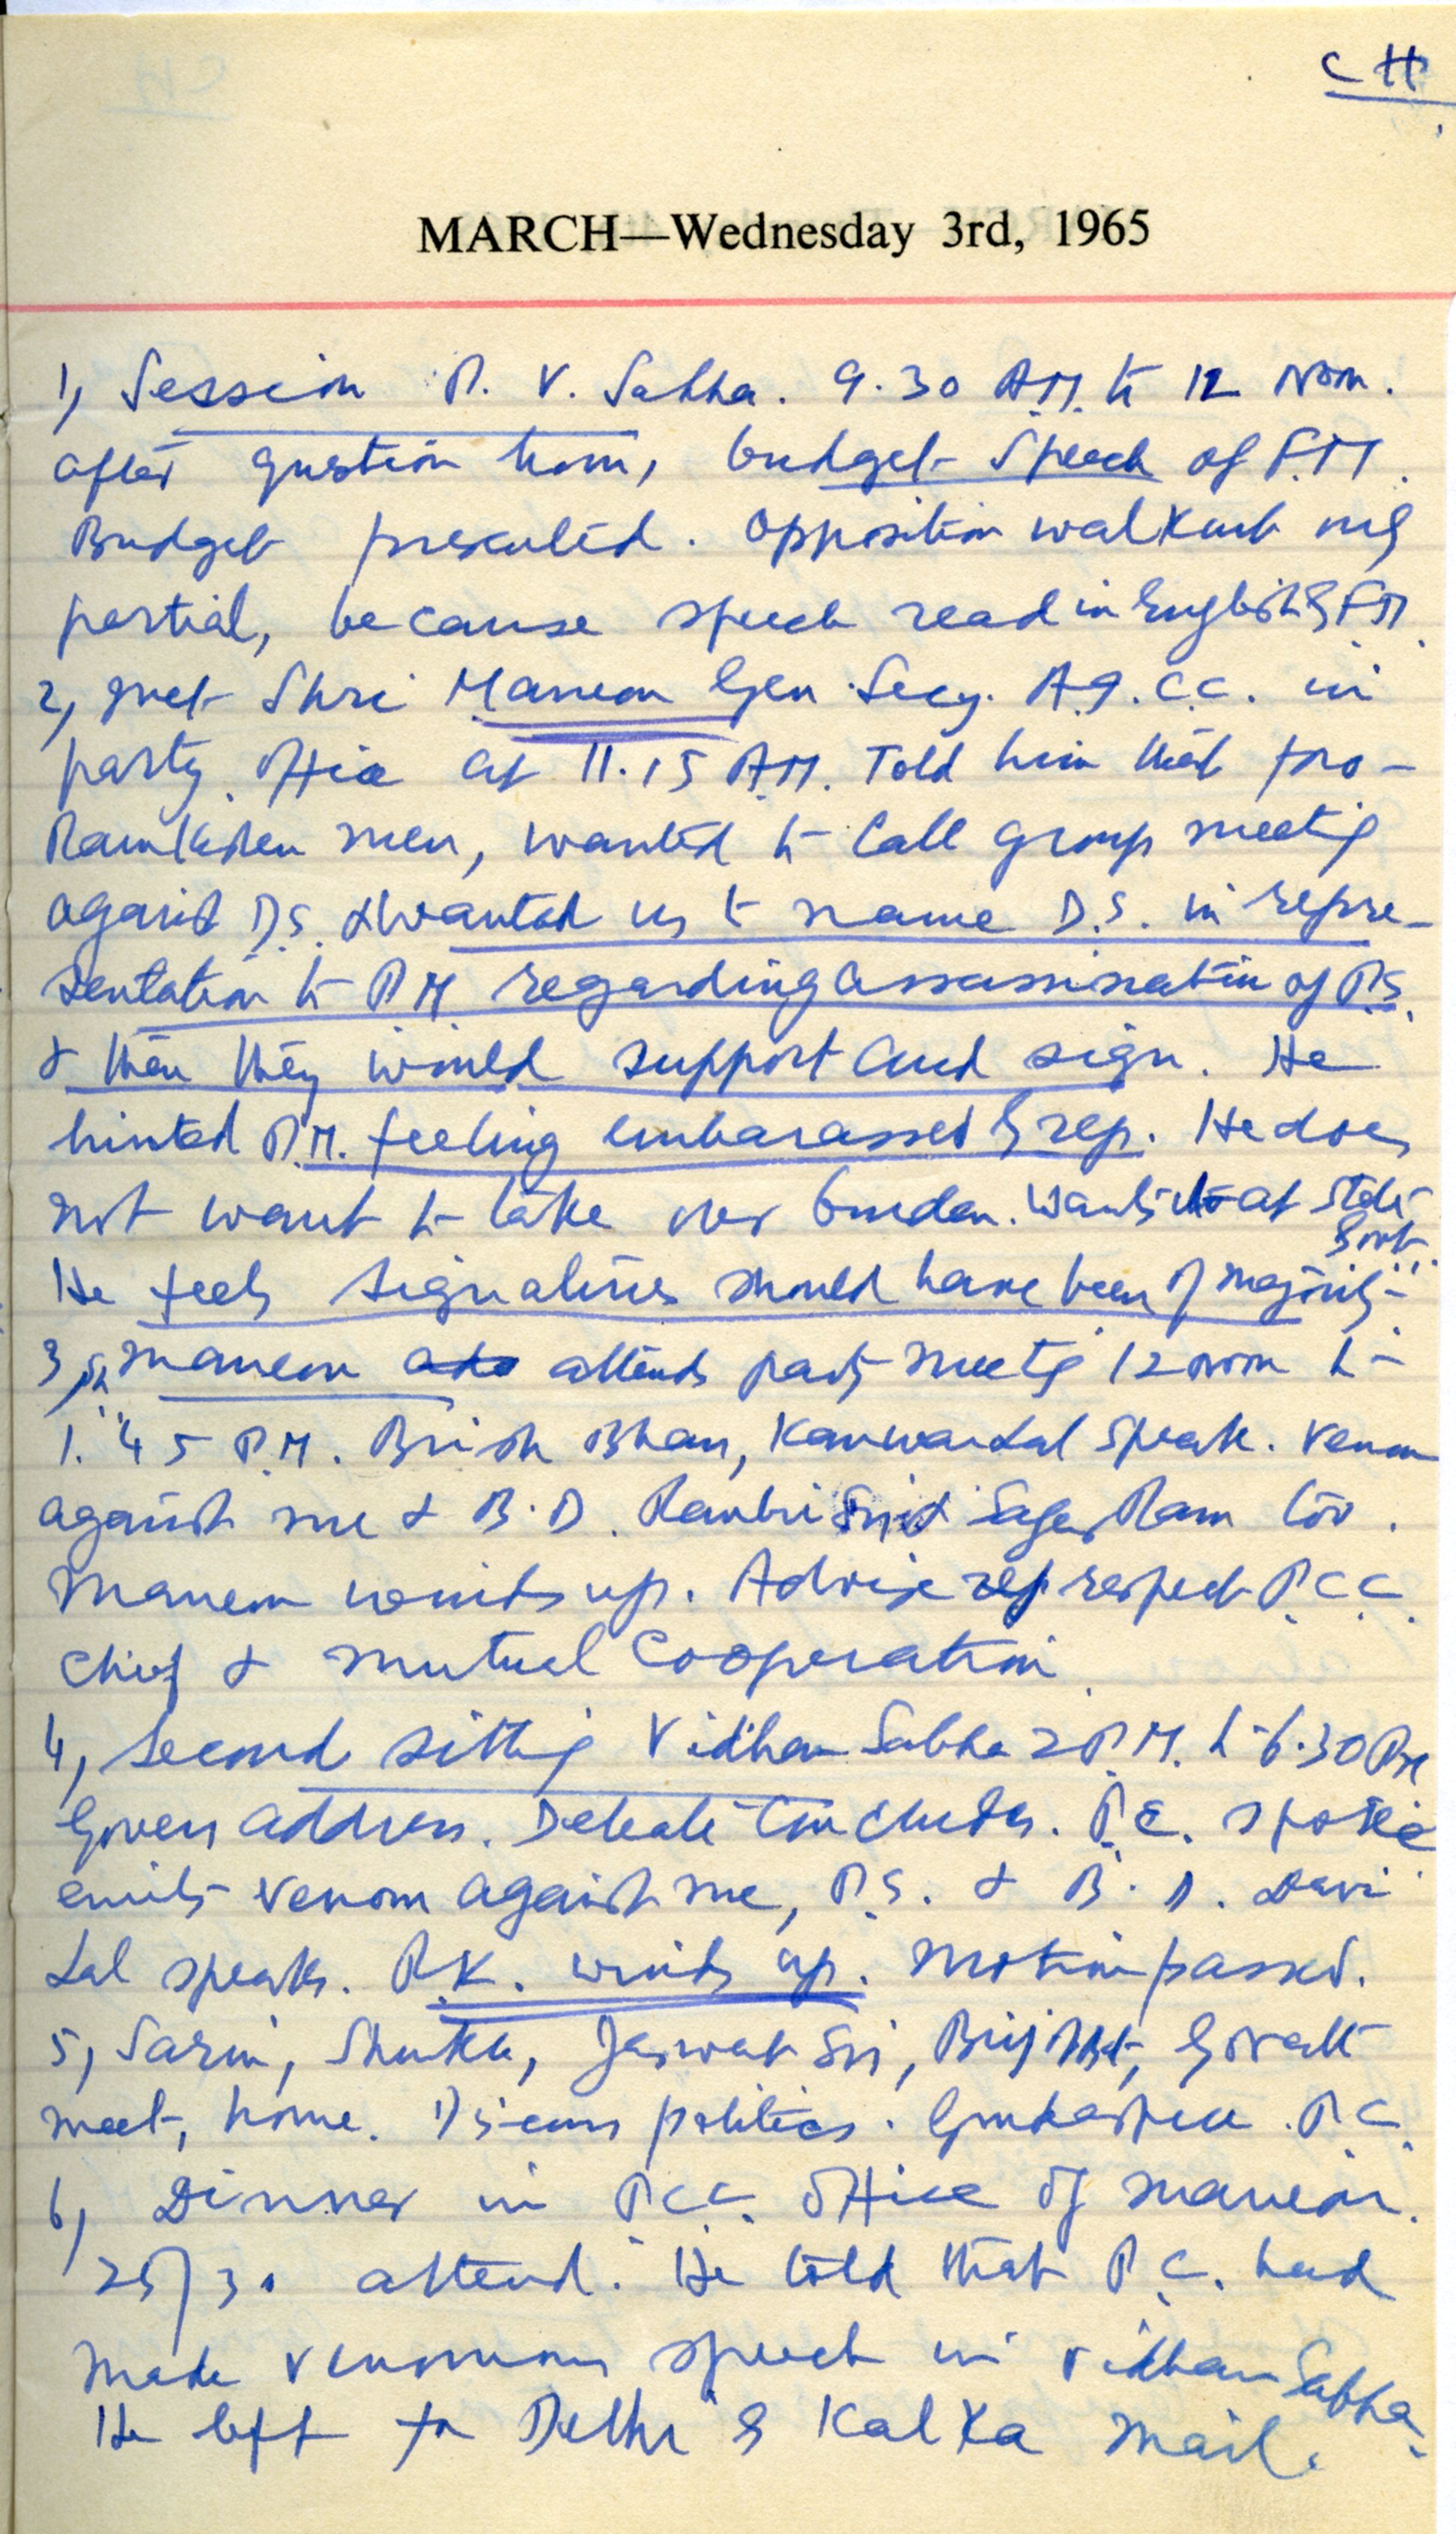 CH
MARCH—Wednesday 3rd, 1965
1, Session P. V. Sabha. 9.30 A.M. to 12 Noon.
after question hour, budget speech of F.M.
Budget presented. Opposition walkout only
partial, because speech read in English by F.M.
2, Met Shri Maneon Gen Secy. A.I.C.C. in
party office at 11.15 A.M. Told him that pro-
Ramkishen men, wanted to call group meeting
against D.S. & wanted us to name D.S. in repre-
sentation to P.M regarding assassination of P.S.
& then they would support and sign. He
hinted P.M. feeling embarassed by rep. He does
not want to take over burden. Wants at State
Govt.
He feels signatures should have been of majority
3, Sh. Maneon attends party meeting 12 noon to
1.45 P.M. Brish Bhan, Kanwar Lal speak. Venom
against me & B.D. Ranbir Singh Sagar Ram too.
Maneon winds up. Advise respect P.C.C.
Chief & mutual cooperation
4, Second sitting Vidhan Sabha 2 P.M. to 6.30 PM
Govers address. Debate concludes. P.C. spoke
emits venom against me, P.S. & B.D. Devi
Lal speaks. R.K. winds up. Motion passed.
5, Sarin, Shukla, Jaswat Sin,
meet, home. Discuss politics. P.C.
6, Dinner in P.C.C. office of Maneon.
25/30 attend. He told that P.C. had
made venomous speech in Vidhan Sabha.
He left for Delhi by Kalka Mail.